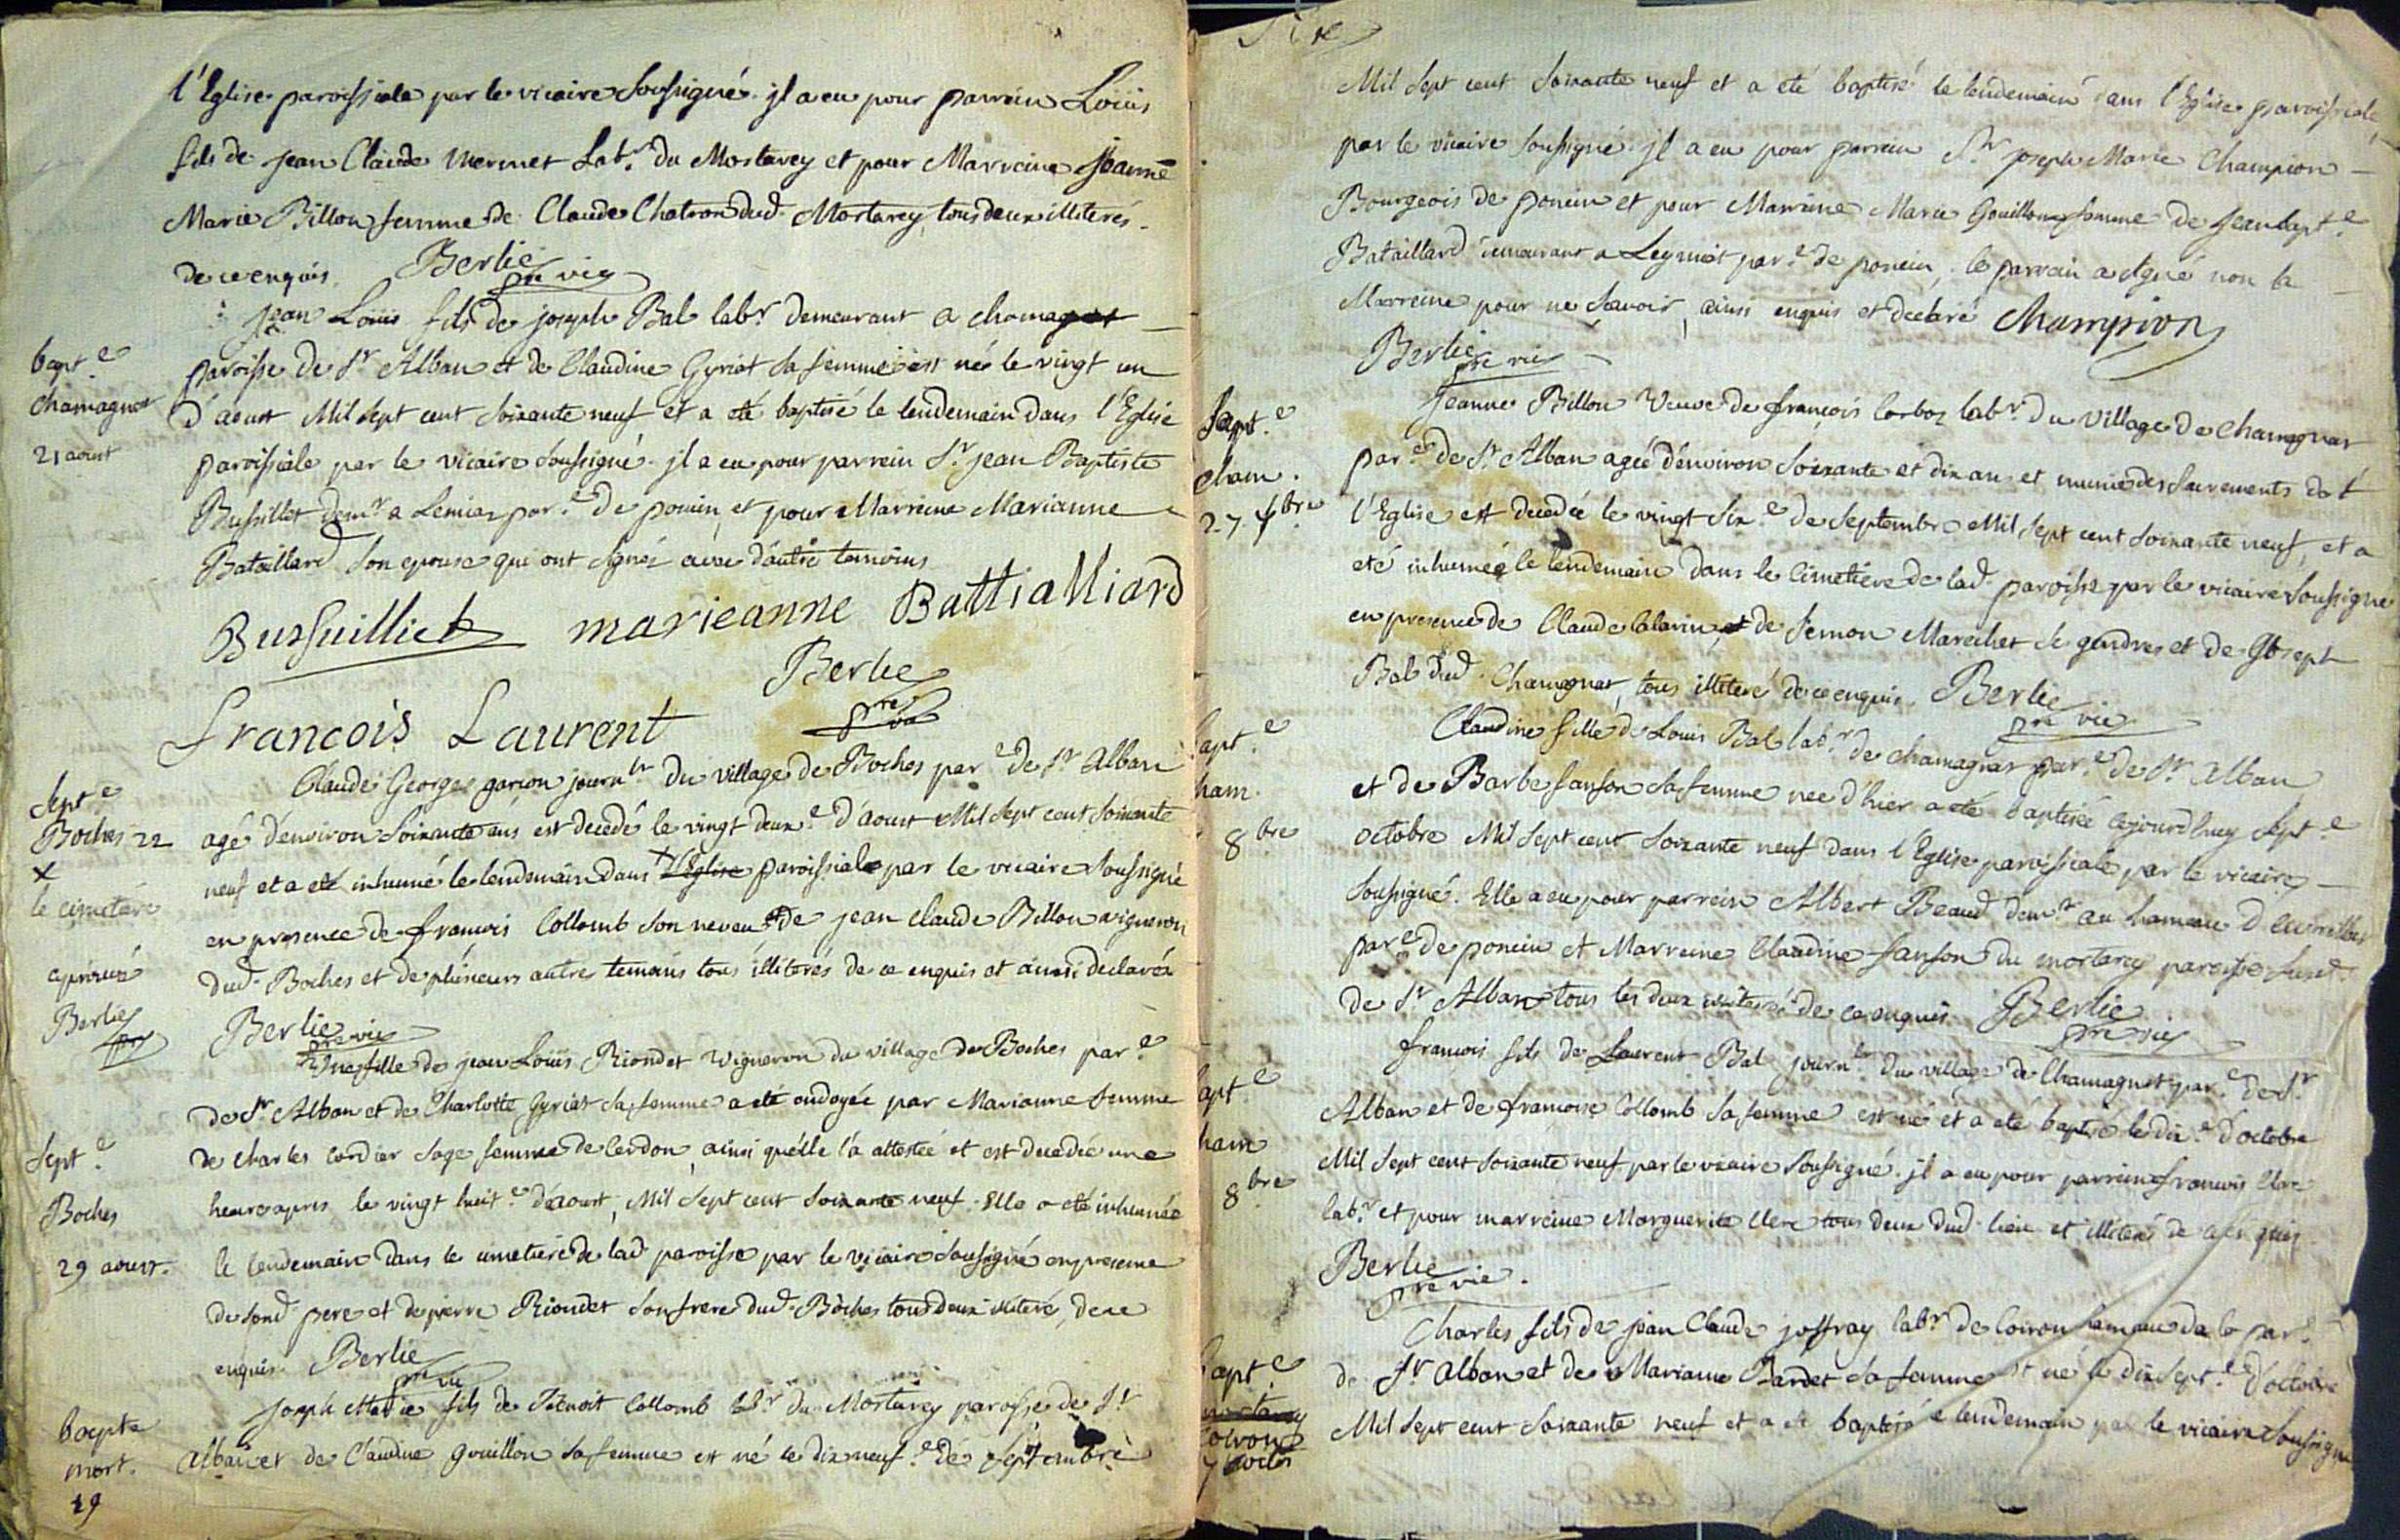 l'Eglise paroissiale par le vicaire soussigné. jl a eu pour parrain Loüis
fils de jean Claude mermet Labr. du Mortarey et pour Marreine Jeanne
Marie Billon femme de Claude Chatron dud. Mortarey, tous deux illiterés.
de ce enquis. Berlie
pre vic
jean Louis fils de joseph Bal labr demeurant a chamagnat
bapt.e
paroisse de St Alban et de Claudine Gyriat sa femme est né le vingt un
chamagnat
d'aoust Mil sept cent soixante neuf et a eté baptisé le lendemain dans l'Eglise
21 aoust
paroissiale par le vicaire soussigné. jl a eu pour parrein Sr. jean Baptiste
Bussillet demr a Lemiaz par.e de poncin, et pour Marreine Marianne
Bataillard son epouse qui ont signéz avec d'autre temoins
Bussuilliet marieanne Battialliard
Berlie
pre vic
francois Laurent
Claude George garcon journlr du village de Boches par.e de St Alban
Sept.e
Boches 22
agé d'environ soixante ans est decedé le vingt deux.e d'aoust Mil sept cent soixante
x
neuf et a eté inhumé le lendemain dans x l'Eglise paroissiale par le vicaire soussigné
le cimetiere
en presence de françois Collomb son neveu et de jean claude Billon vigneron
aprouvé
dud. Boches et de plusieurs autres temoins tous illiterés de ce enquis et ainsi declaréz
Berlie
pre
Berlie
pre vic
Une fille de jean Loüis Riondet vigneron du village de Boches par.e
de St Alban et de Charlotte Gyriat sa femme a eté ondoyée par Marianne femme
Sept.e
de charles cordier sage femme de Cerdon, ainsi qu'elle l'a attestée et est decedée une
Boches
heure apres le vingt huit.e d'aoust, Mil sept cent soixante neuf. Elle a eté inhumée
29 aoust.
le lendemain dans le cimetiere de lad. paroisse par le vicaire soussigné en presence
de sond. pere et de pierre Riondet son frere dud. Boches tous deux illiteré, de ce
enquis. Berlie
pre vic
joseph Marie fils de Benoit Collomb labr du Mortarey paroisse de St
bapte
mort.
Alban et de Claudine gouillon sa femme est né le dix neuf.e de septembre
19
Mil sept cent soixante neuf et a eté baptisé le lendemain dans l'Eglise paroissiale
par le vicaire soussigné. jl a eu pour parrein Sr. joseph Marie Champion
Bourgeois de poncin et pour Marreine Marie Gouillon femme de jean bapt.e
Bataillard demeurant a Leymiat par.e de poncin, le parrein a signé non la
Marreine pour ne sçavoir, ainsi enquis et declaré Champion
Berlie
pre vic
Jeanne Billon Veuve de françois Corboz labr. du village de chamagnat
Sept.e
cham.
par.e de St Alban agée d'environ soixante et dix ans et munie des sacrements de
27 7bre
l'Eglise est decedée le vingt six.e de septembre Mil sept cent soixante neuf, et a
eté inhumée le lendemain dans le Cimetiere de lad. paroisse par le vicaire soussigné
en presence de Claude et de Semon Marechet se gendres et de Joseph
Bal dud. Chamagnat, tous illiteré de ce enquis. Berlie
pre vic
Claudine fille de Louis Bal labr. de chamagnat par.e de St. Alban
apt.e
ham.
et de Barbe sanson sa femme née d'hier a eté baptisée cejourd'huy sept.e
8bre
octobre Mil sept cent soixante neuf dans l'Eglise paroissiale par le vicaire
soussigné. Elle a eu pour parrein Albert Beaud demr au hameau
par.e de poncin et Marreine Claudine sanson du mortarey paroisse susd.
de St Alban tous les deux illiteré de ce enquis. Berlie
pre vic
francois fils de Laurent Bal journlr du village de Chamagnat par.e de St
apt.e
Alban et de francoise Collomb sa femme est né et a eté baptisé le dix.e d'octobre
ham
Mil sept cent soixante neuf par le vicaire soussigné. jl a eu pour parrein francois Clerc
8bre
labr. et pour marreine Marguerite Clerc tous deux dud. lieu et illiteré de
Berlie
pre vic.
Charles fils de jean Claude joffray labr de Coiron hameau de la par.
apt.e
de St alban et de Marianne Bardet sa femme est né le dix sept.e d'octobre
mortarey
Coiron
Mil sept cent soixante neuf et a eté baptisé le lendemain par le vicaire soussigné